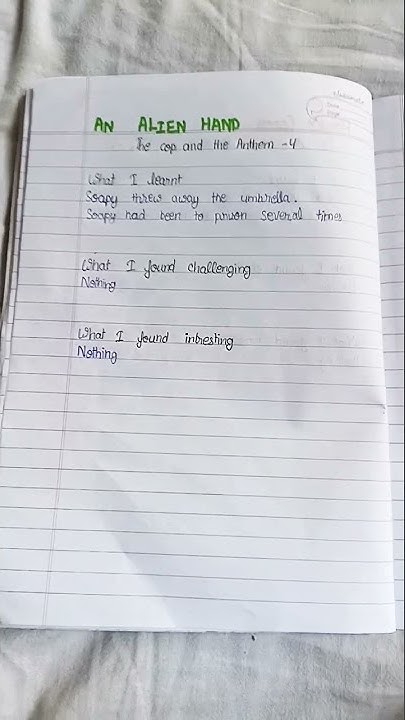 AN ALIEN HAND
The cop and the Anthem -4
What I learnt
Soapy threw away the umbrella.
Soapy had been to prison several times
What I found challenging
Nothing
What I found intresting
Nothing